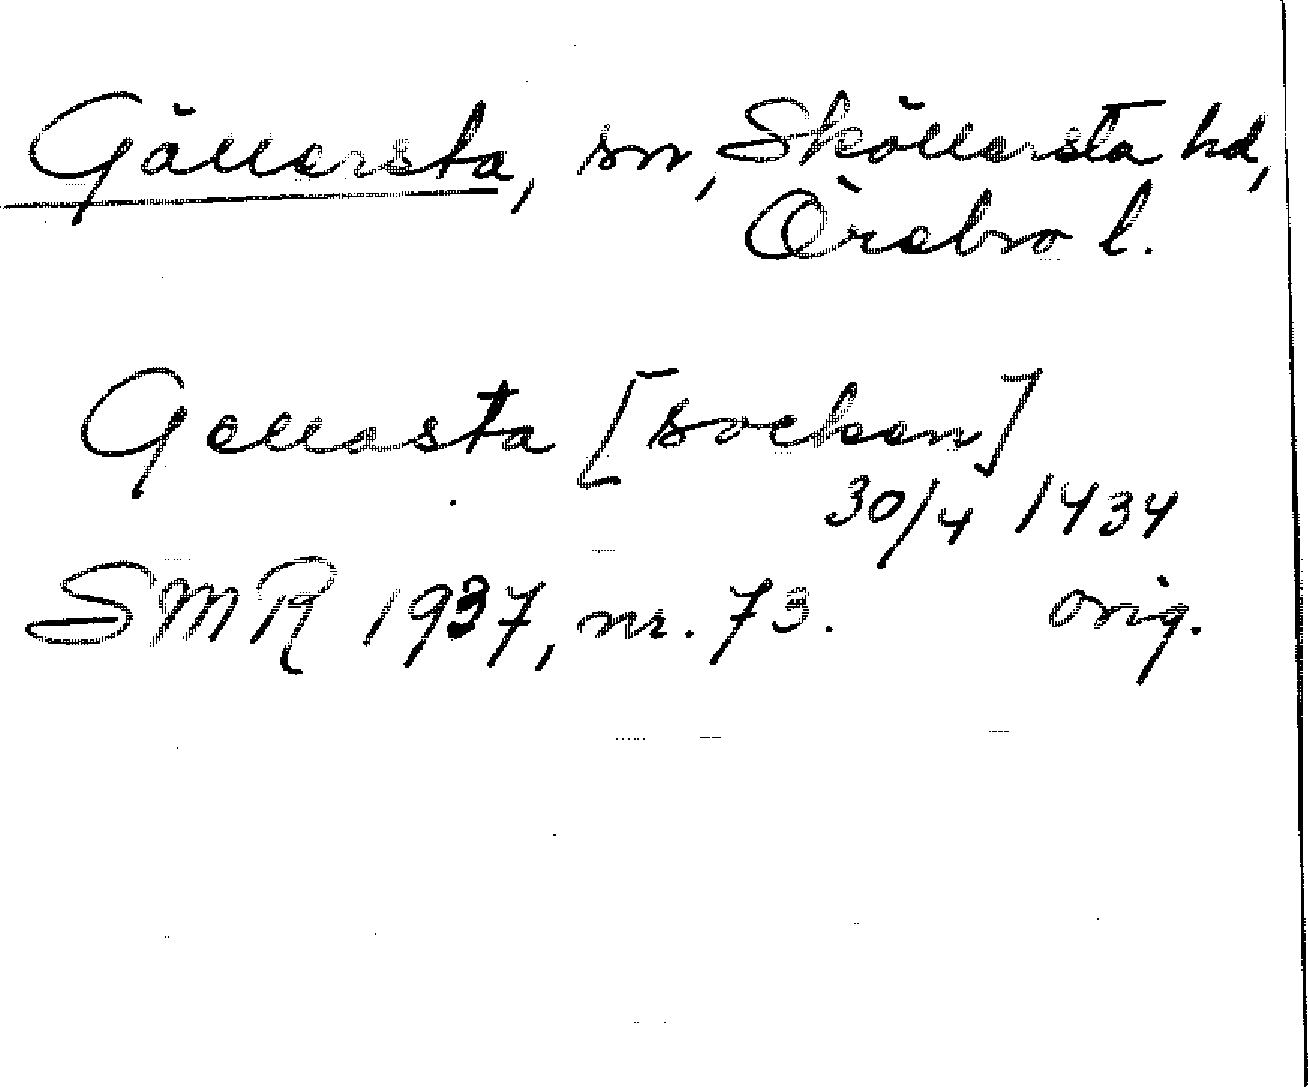 Gällersta, sn, Sköllersta hd,
Örebro l.
Gellesta [socken]
30/4 1434
SMR 1937, nr. 73. orig.